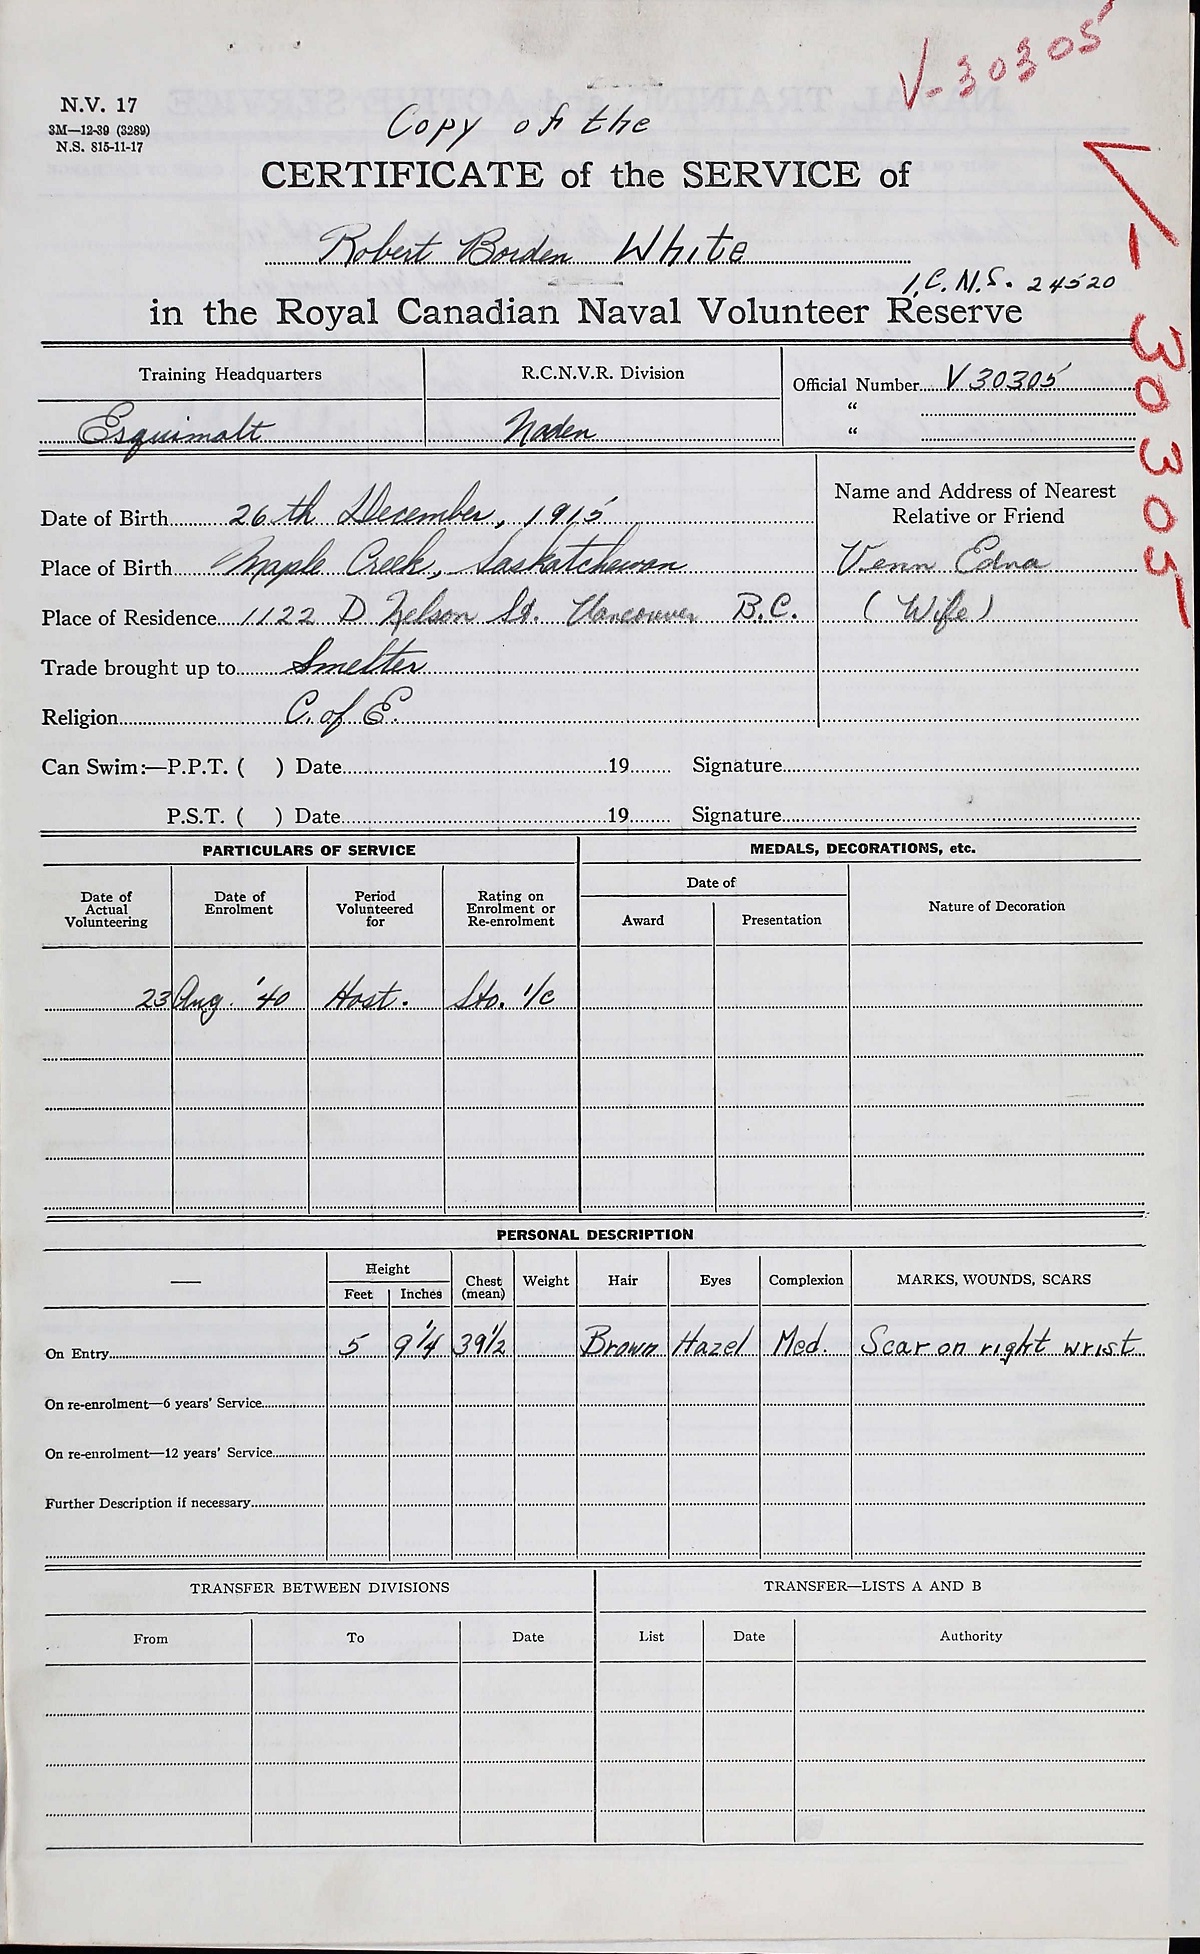 V-30305
N.V. 17
3M—12-39 (3289)
N.S. 815-11-17
Copy of the
CERTIFICATE of the SERVICE of
Robert Borden White
I.C.N.S. 24520
in the Royal Canadian Naval Volunteer Reserve
V-30305
Training Headquarters R.C.N.V.R. Division Official Number V 30305
“
Esquimalt Naden “
Name and Address of Nearest
Relative or Friend
Date of Birth 26th December, 1915
Place of Birth Maple Creek, Saskatchewan Venn Edna
Place of Residence 1122 D. Nelson St. Vancouver B.C. (Wife)
Trade brought up to Smelter
Religion C. of E.
Can Swim:—P.P.T. ( ) Date 19 Signature
P.S.T. ( ) Date 19 Signature
PARTICULARS OF SERVICE MEDALS, DECORATIONS, etc.
Date of Actual Volunteering Date of Enrolment Period Volunteered for Rating on Enrolment or Re-enrolment Date of Award Presentation Nature of Decoration
23 Aug. '40 Host. Sto. 1/c
PERSONAL DESCRIPTION
— Height Feet Inches Chest (mean) Weight Hair Eyes Complexion MARKS, WOUNDS, SCARS
On Entry 5 9 1/4 39 1/2 Brown Hazel Med. Scar on right wrist
On re-enrolment—6 years' Service
On re-enrolment—12 years' Service
Further Description if necessary
TRANSFER BETWEEN DIVISIONS TRANSFER—LISTS A AND B
From To Date List Date Authority